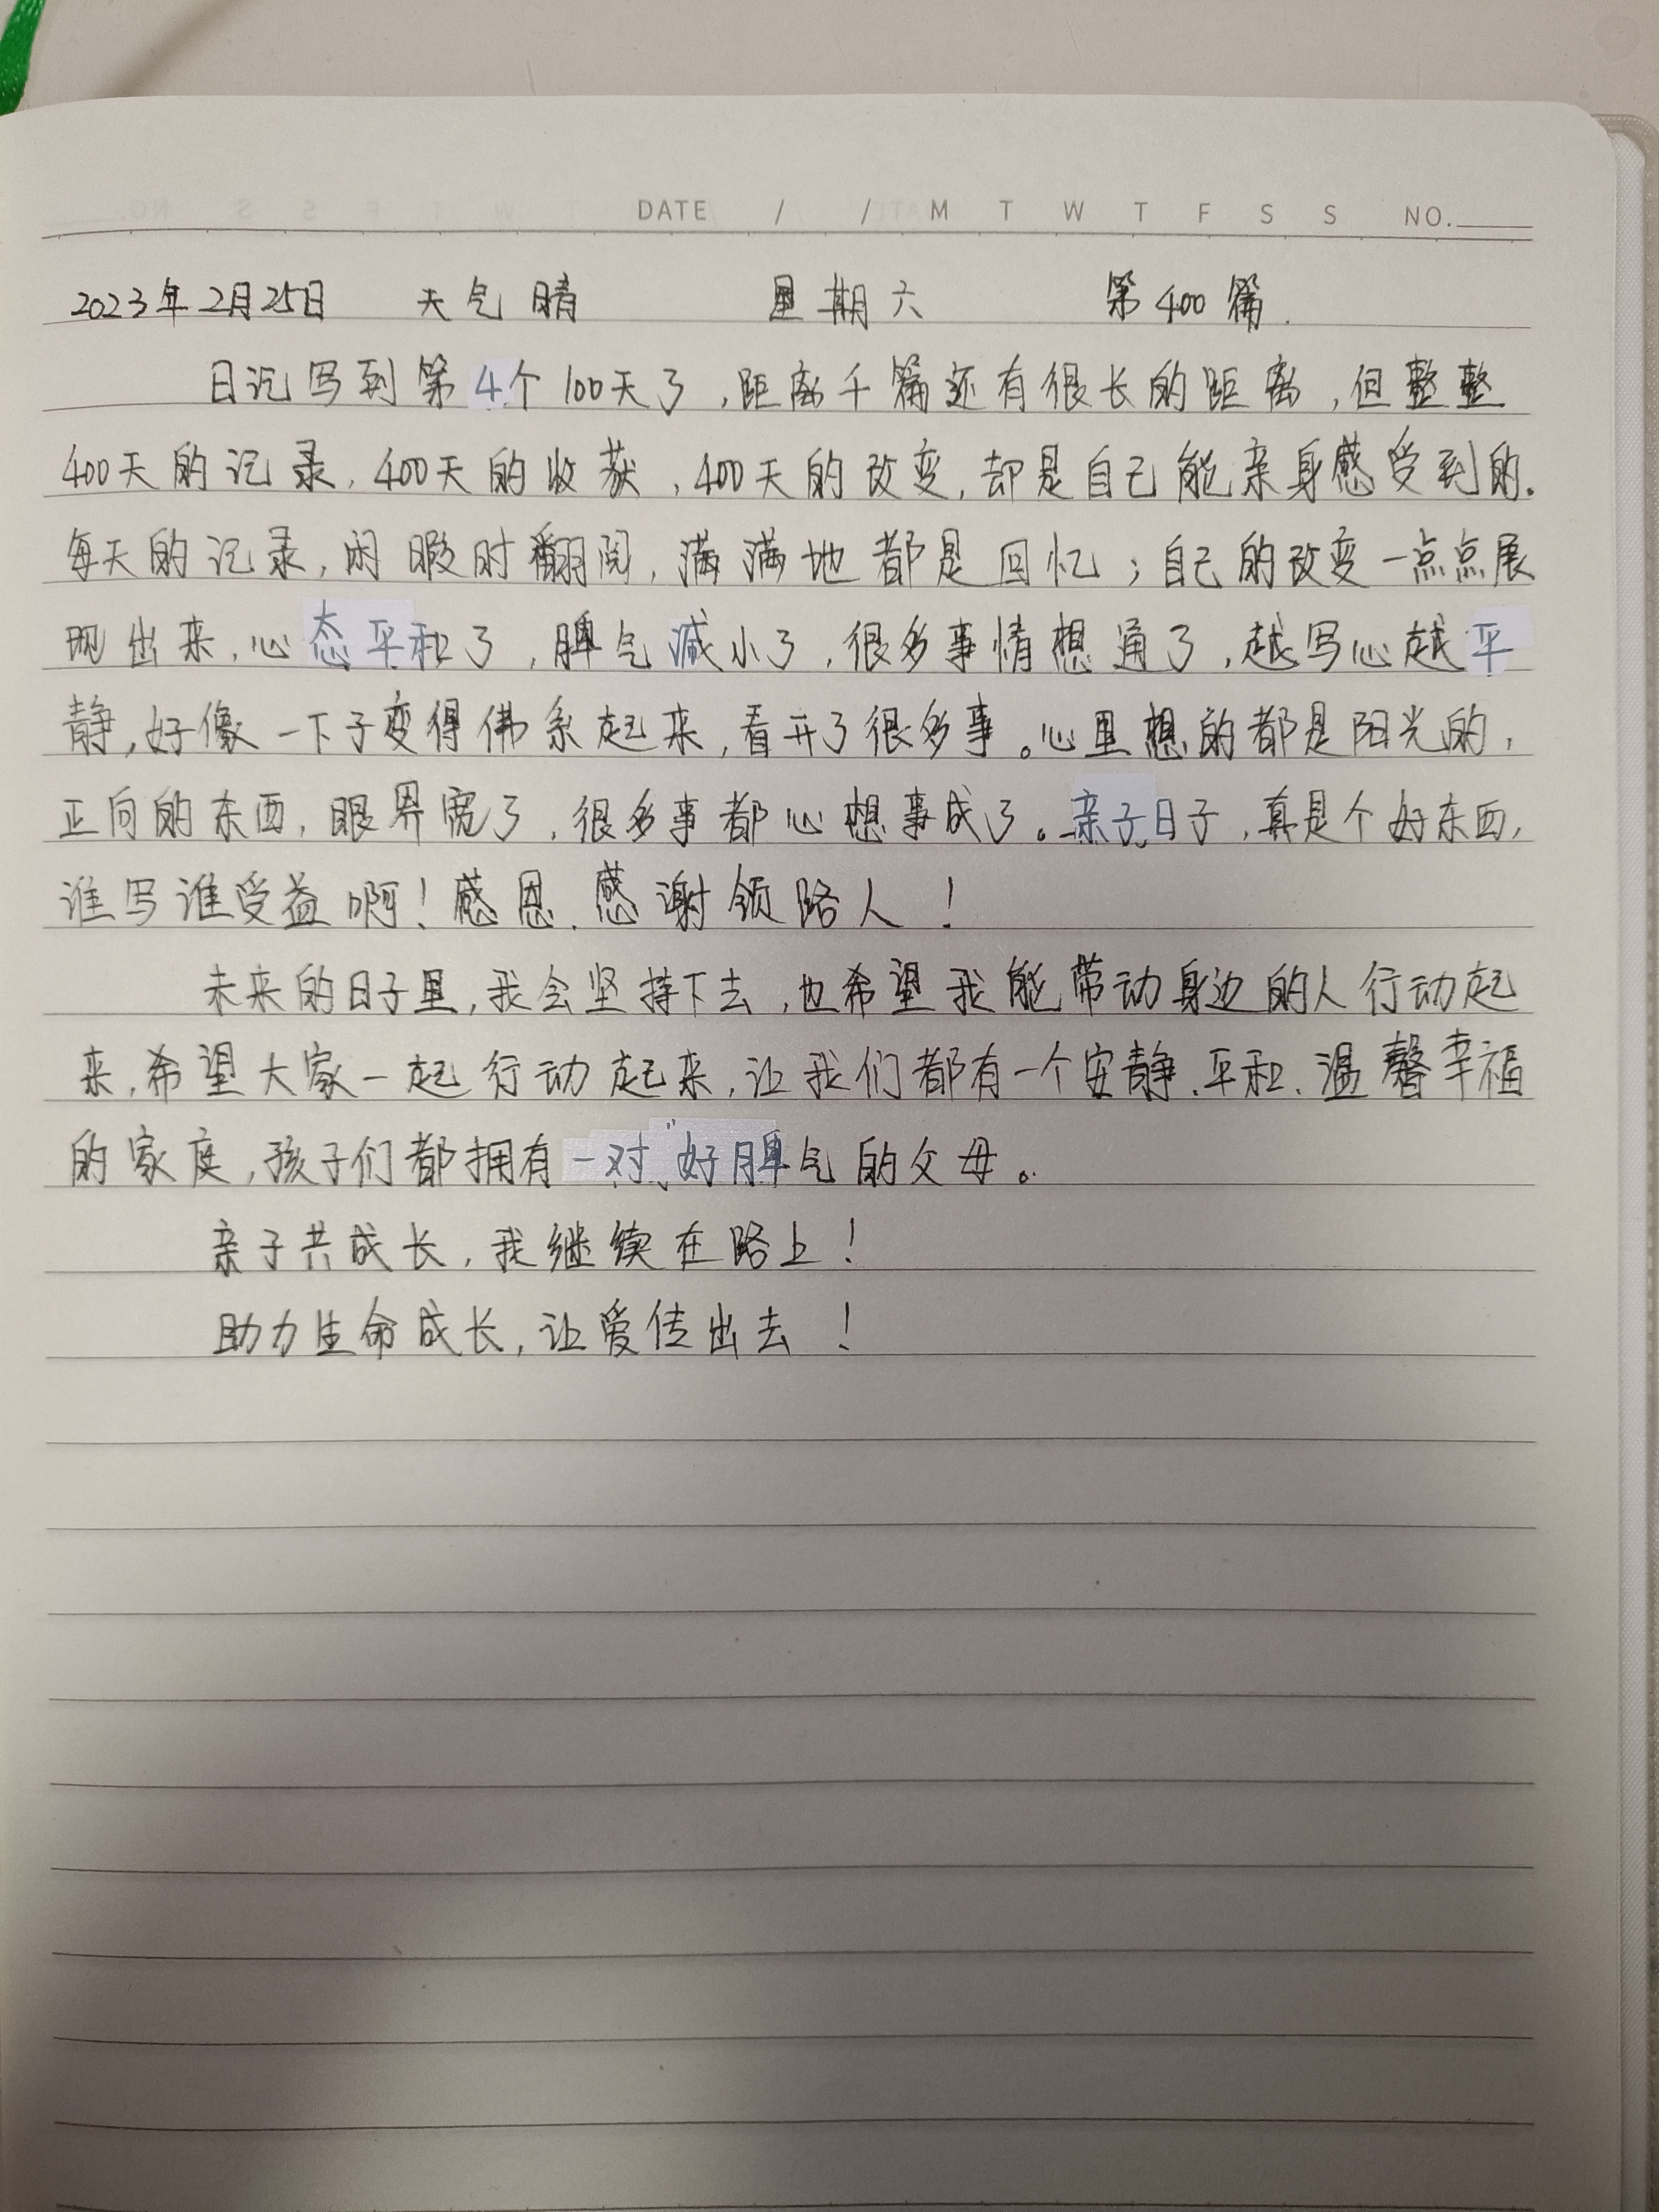 DATE / / M T W T F S S NO.
2023年2月25日 天气晴 星期六 第400篇.
日记写到第4个100天了,距离千篇还有很长的距离,但整整
400天的记录,400天的收获,400天的改变,却是自己能亲身感受到的.
每天的记录,闲暇时翻阅,满满地都是回忆;自己的改变一点点展
现出来,心态平和了,脾气减小了,很多事情想通了,越写心越平
静,好像一下子变得佛系起来,看开了很多事。心里想的都是阳光的,
正向的东西,眼界宽了,很多事都心想事成了。亲子日子,真是个好东西,
谁写谁受益啊!感恩.感谢领路人!
未来的日子里,我会坚持下去,也希望我能带动身边的人行动起
来,希望大家一起行动起来,让我们都有一个安静.平和.温馨幸福
的家庭,孩子们都拥有一对"好脾气的父母。
亲子共成长,我继续在路上!
助力生命成长,让爱传出去!